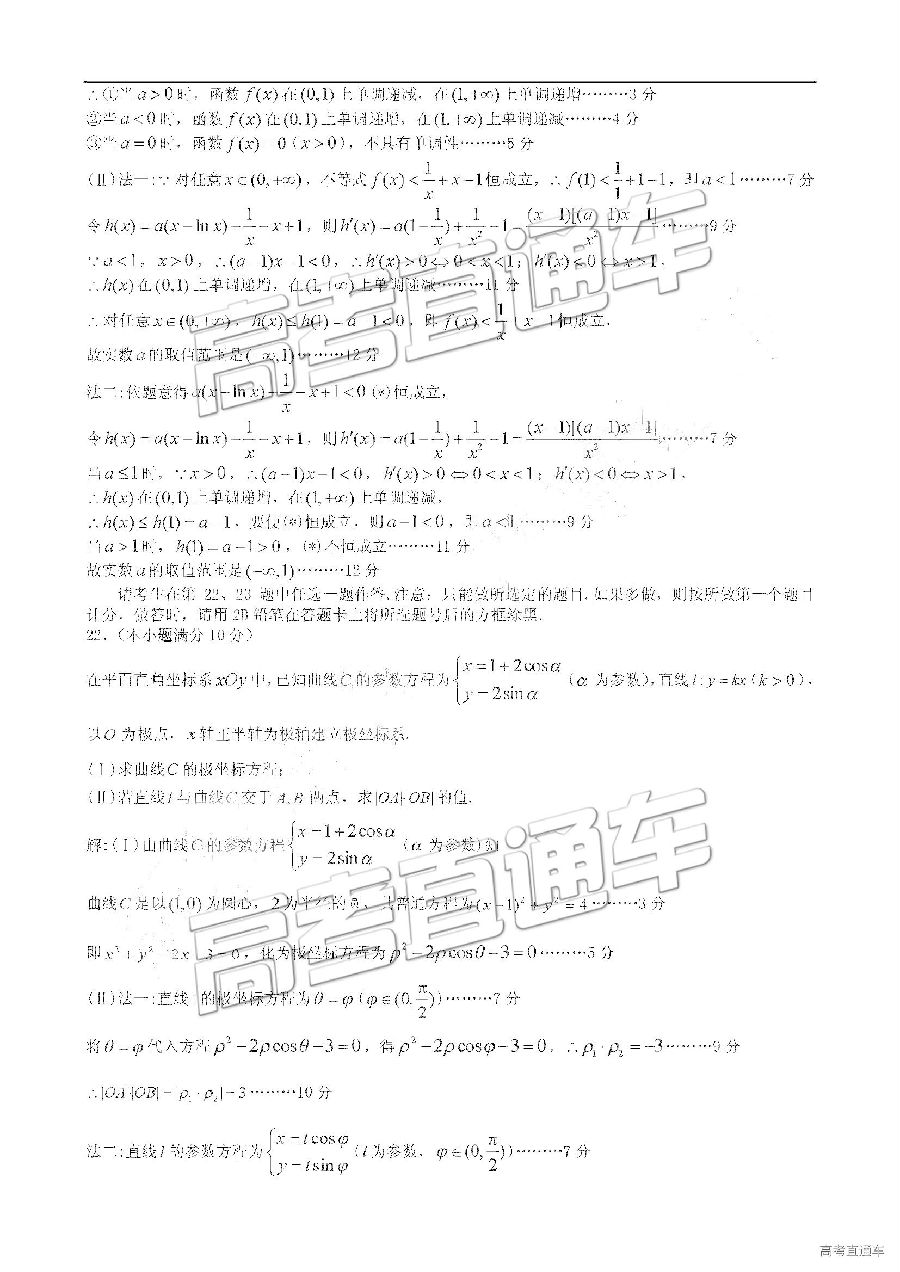 ∴①当a>0时，函数f(x)在(0,1)上单调递减，在(1,+∞)上单调递增………3分
②当a<0时，函数f(x)在(0,1)上单调递增，在(1,+∞)上单调递减………4分
③当a=0时，函数f(x)=0(x>0)，不具有单调性………5分
(Ⅱ)法一:∵对任意x∈(0,+∞)，不等式f(x)<1/x+x−1恒成立，∴f(1)<1/1+1−1，即a<1………7分
令h(x)=a(x−ln x)−1/x−x+1，则h′(x)=a(1−1/x)+1/x²−1=(x−1)[(a−1)x−1]/x²………9分
∵a<1，x>0，∴(a−1)x−1<0，∴h′(x)>0⇔0<x<1；h′(x)<0⇔x>1，
∴h(x)在(0,1)上单调递增，在(1,+∞)上单调递减………11分
∴对任意x∈(0,+∞)，h(x)≤h(1)=a−1<0，即f(x)<1/x+x−1恒成立，
故实数a的取值范围是(−∞,1)………12分
法二:依题意得a(x−ln x)−1/x−x+1<0(*)恒成立，
令h(x)=a(x−ln x)−1/x−x+1，则h′(x)=a(1−1/x)+1/x²−1=(x−1)[(a−1)x−1]/x²………7分
当a≤1时，∵x>0，∴(a−1)x−1<0，h′(x)>0⇔0<x<1；h′(x)<0⇔x>1，
∴h(x)在(0,1)上单调递增，在(1,+∞)上单调递减，
∴h(x)≤h(1)=a−1，要使(*)恒成立，则a−1<0，即a<1………9分
当a>1时，h(1)=a−1>0，(*)不恒成立………11分
故实数a的取值范围是(−∞,1)………12分
请考生在第22、23题中任选一题作答.注意：只能做所选定的题目.如果多做，则按所做第一个题目
计分，做答时，请用2B铅笔在答题卡上将所选题号后的方框涂黑.
22.（本小题满分10分）
在平面直角坐标系xOy中,已知曲线C的参数方程为{x=1+2cosα y=2sinα（α为参数),直线l:y=kx(k>0)，
以O为极点，x轴正半轴为极轴建立极坐标系.
(Ⅰ)求曲线C的极坐标方程;
(Ⅱ)若直线l与曲线C交于A,B两点，求|OA|·|OB|的值.
解:(Ⅰ)由曲线C的参数方程{x=1+2cosα y=2sinα（α为参数)知
曲线C是以(1,0)为圆心，2为半径的圆，其普通方程为(x−1)²+y²=4………3分
即x²+y²−2x−3=0，化为极坐标方程为ρ²−2ρcosθ−3=0………5分
(Ⅱ)法一:直线l的极坐标方程为θ=φ(φ∈(0,π/2))………7分
将θ=φ代入方程ρ²−2ρcosθ−3=0，得ρ²−2ρcosφ−3=0，∴ρ₁·ρ₂=−3………9分
∴|OA|·|OB|=|ρ₁·ρ₂|=3………10分
法二:直线l的参数方程为{x=tcosφ y=tsinφ（t为参数，φ∈(0,π/2))………7分
高考直通车
高考直通车
高考直通车